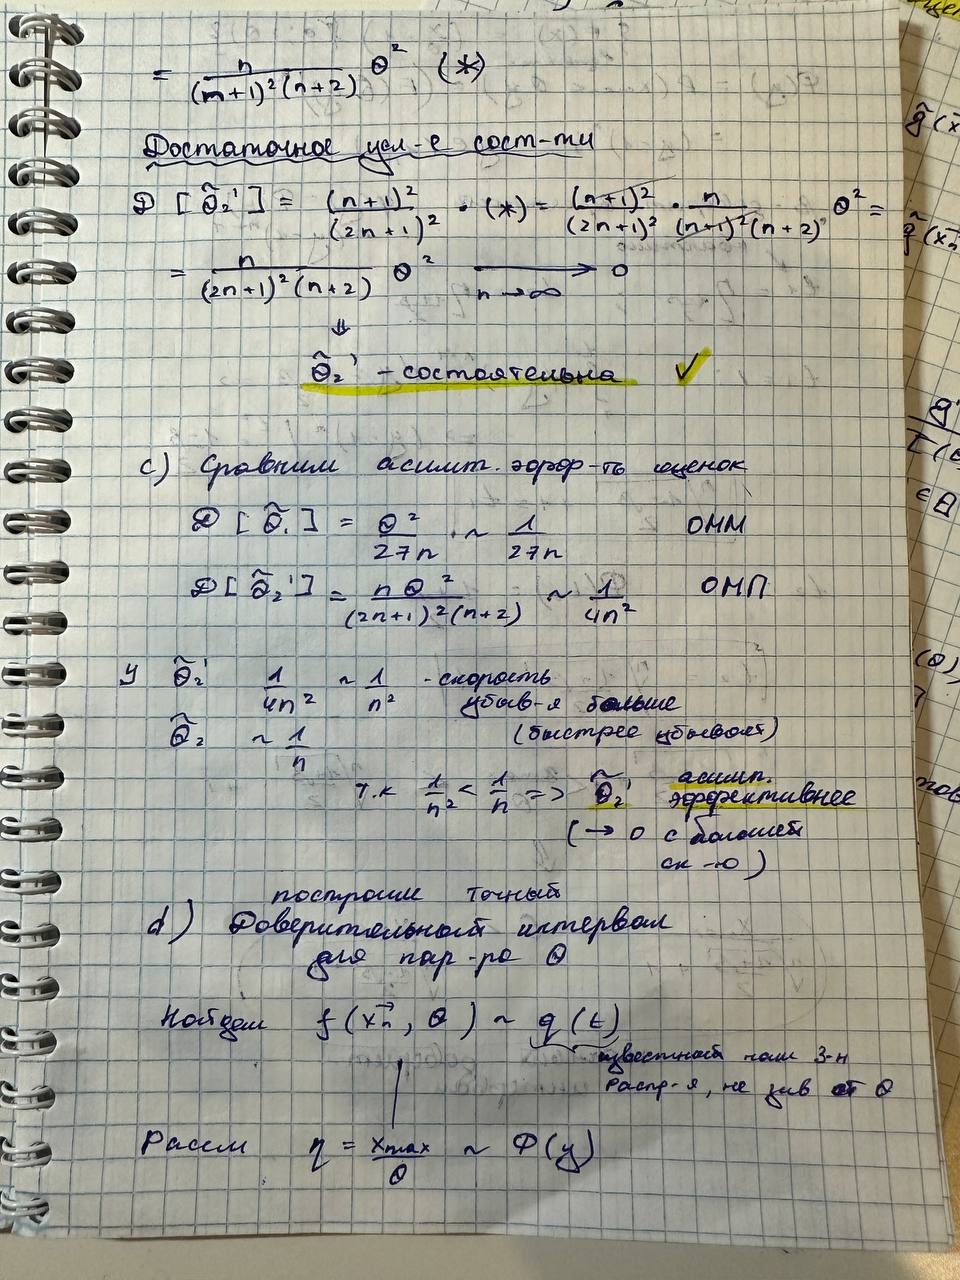 = n/((n+1)²(n+2)) θ² (*)
Достаточное усл-е сост-ти
D[θ̃₂'] = (n+1)²/(2n+1)² · (*) = (n+1)²/(2n+1)² · n/((n+1)²(n+2)) θ² =
= n/((2n+1)²(n+2)) θ² → 0
n→∞
⇓
θ̃₂' - состоятельна ✓
c) Сравним асимпт. эфф-ть оценок
D[θ̃₁] = θ²/(27n) ~ 1/(27n) ОММ
D[θ̃₂'] = nθ²/((2n+1)²(n+2)) ~ 1/(4n²) ОМП
У θ̃₂' 1/(4n²) ~ 1/n² - скорость
убыв-я больше
θ̃₂ ~ 1/n (быстрее убывает)
т.к 1/n² < 1/n => θ̃₂' асимп.
эффективнее
(→ 0 с большей
ск-ю)
построим точный
d) Доверительный интервал
для пар-ра θ
Найдем f(x⃗ₙ, θ) ~ g(t)
известный нам з-н
распр-я, не зав от θ
Рассм η = xmax/θ ~ Φ(y)